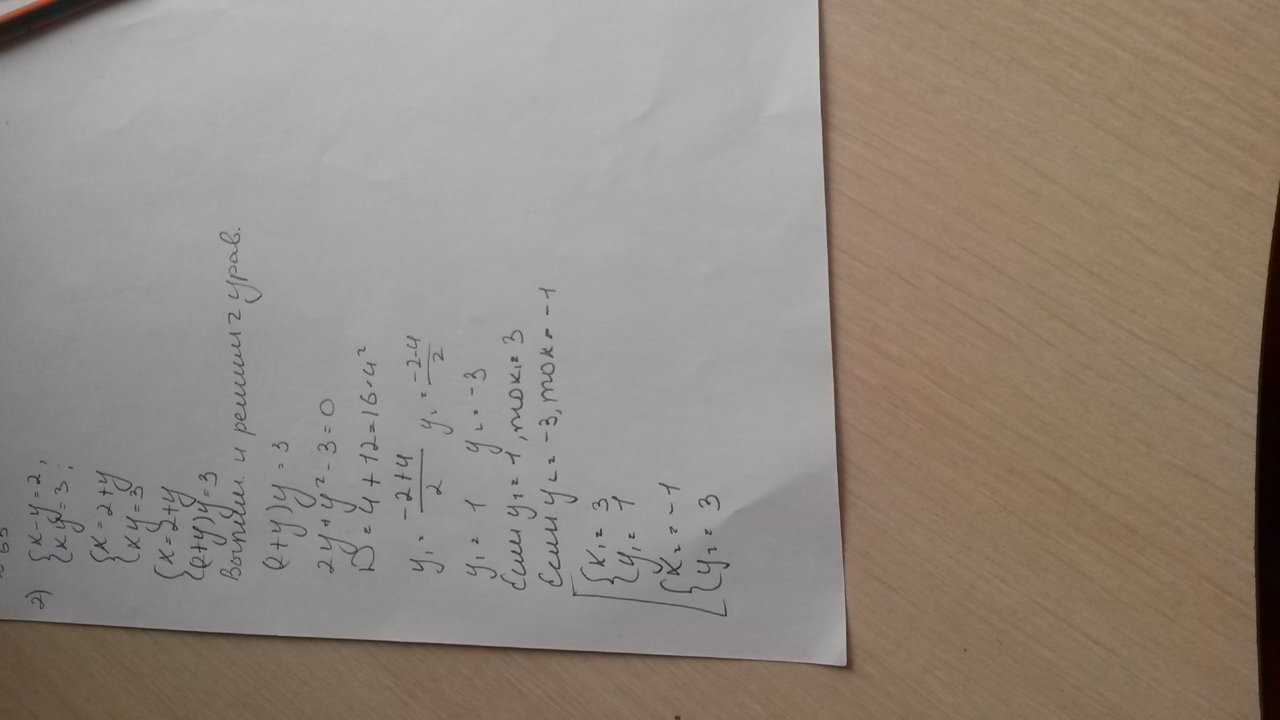 2) { x - y = 2,
{ xy = 3;
{ x = 2 + y
{ xy = 3
{ x = 2 + y
{ (2+y)y = 3
Выпишем и решим 2 урав.
(2+y)y = 3
2y + y² - 3 = 0
D = 4 + 12 = 16 = 4²
y₁ = (-2+4)/2 y₂ = (-2-4)/2
y₁ = 1 y₂ = -3
Если y₁ = 1, то x₁ = 3
Если y₂ = -3, то x = -1
[ { x₁ = 3
{ y₁ = 1
{ x₂ = -1
{ y₂ = 3